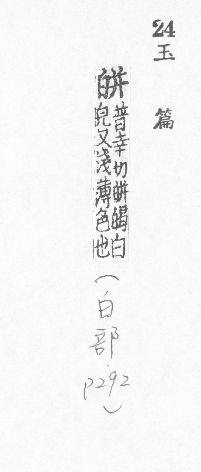 24
玉篇
皏 普幸切皏䁍白
皃又淺薄色也
(白部.
P292)